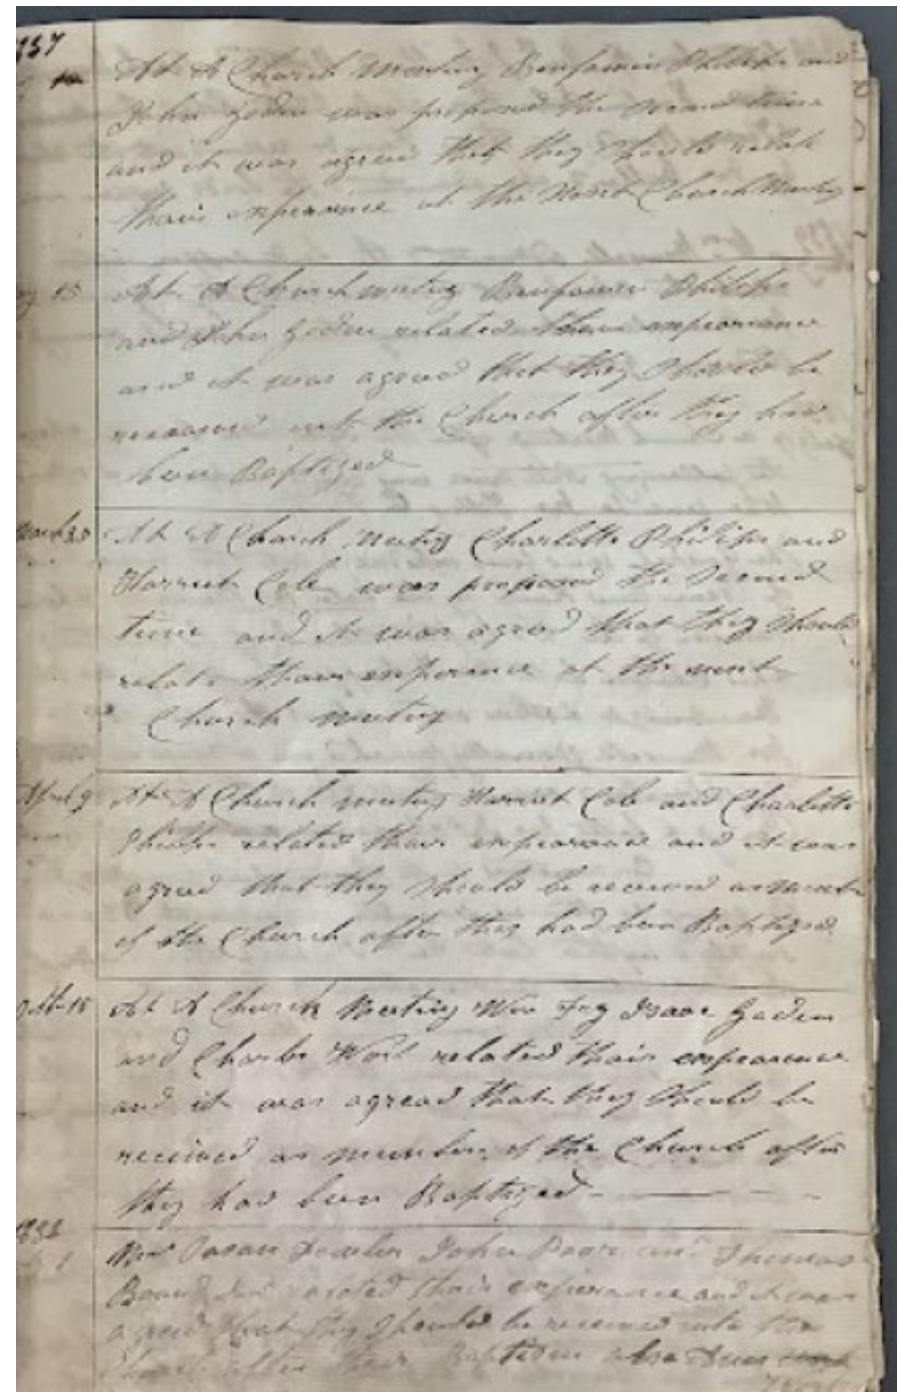 1837
At A Church Meeting Benjamin Philips and
John Goden was proposed the second time
and it was agreed that they should relate
thair experience at the Next Church Meeting
15
At A Church meeting Benjamin Philips
and John Goden related thair experiance
and it was agreed that they should be
received into the Church after they had
been Baptized
March
At A Church Meeting Charlotte Philips and
Harriet Cole was proposed the Second
time and it was agreed that they should
relate thair experience at the next
Church Meeting
April 9
At A Church meeting Harriet Cole and Charlotte
Philips related thair experiance and it was
agreed that they should be received as
of the Church after they had been Baptized
15
At A Church Meeting Wm Isaac Goden
and Charles related thair experience
and it was agreed that they should be
received as members of the Church after
they had been Baptized
John and Thomas
related thair experience and it was
agreed that they should be received into the
Church after their Baptism